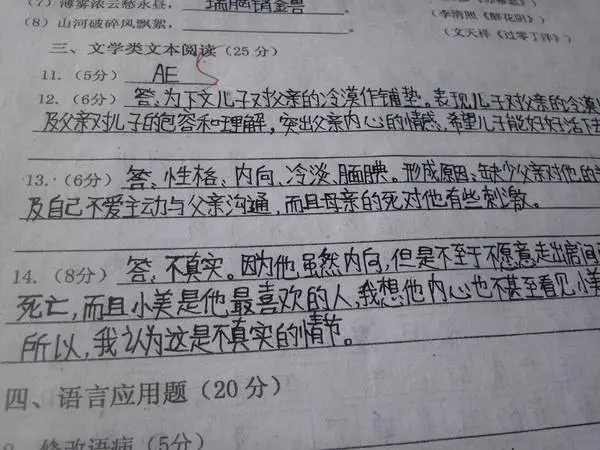 (7) 薄雾浓云愁永昼，瑞脑销金兽
(李清照《醉花阴》)
(8) 山河破碎风飘絮，
(文天祥《过零丁洋》)
三、文学类文本阅读(25分)
11. (5分) AE
12. (6分) 答：为下文儿子对父亲的冷漠作铺垫。表现儿子对父亲的冷漠
及父亲对儿子的包容和理解，突出父亲内心的情感，希望儿子能好好活下去
13. (6分) 答：性格、内向、冷淡、腼腆。形成原因：缺少父亲对他的
及自己不爱主动与父亲沟通，而且母亲的死对他有些刺激。
14. (8分) 答：不真实。因为他虽然内向，但是不至于不愿意走出房间
死亡，而且小美是他最喜欢的人，我想他内心也不甚至看见小美
所以，我认为这是不真实的情节。
四、语言应用题(20分)
修改语病(5分)